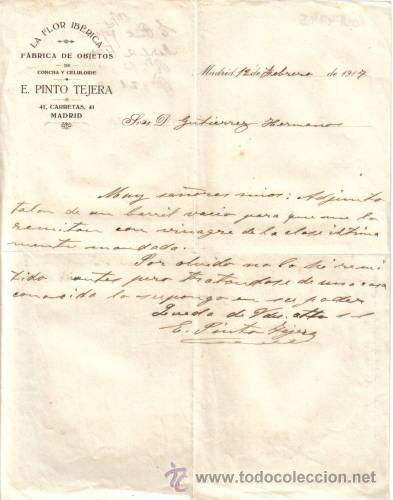 LA FLOR IBÉRICA
FÁBRICA DE OBJETOS
DE
CONCHA Y CELULOIDE
E. PINTO TEJERA
41, CARRETAS, 41
MADRID
Madrid 12 de Febrero de 1917
Sres D. Gutierrez Hermanos
Muy señores mios: Adjunto
talon de un barril vacio para que me lo
remitan con vinagre de la clase última
mente mandado.
Por olvido no lo he remi
tido antes pero tratandose de una casa
conocida lo supongo en su poder
Quedo de Vds. atto s s
E. Pinto Tejera
www.todocoleccion.net